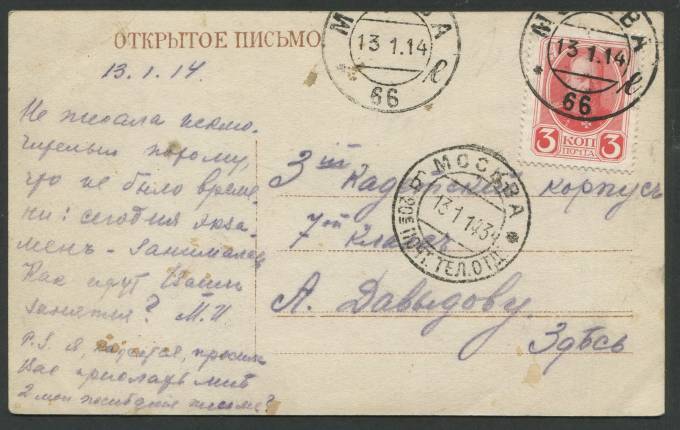 ОТКРЫТОЕ ПИСЬМО
13.1.14.
Не писала исклю-
чительно потому,
что не было време-
ни: сегодня экза-
менъ - занималась
Как идут Ваши
занятия? М.И
P.S. Я, кажется, просила
Вас прислать мнѣ
2 мои последние письма?
МОСКВА
13 1.14
66
МОСКВА
13 1.14
66
3 КОП 3
ПОЧТА
МОСКВА
13.1.14
ПОЧТ. ТЕЛ. ОТД.
3ий Кадетский корпусъ
7ой классъ
А. Давыдову.
Здѣсь